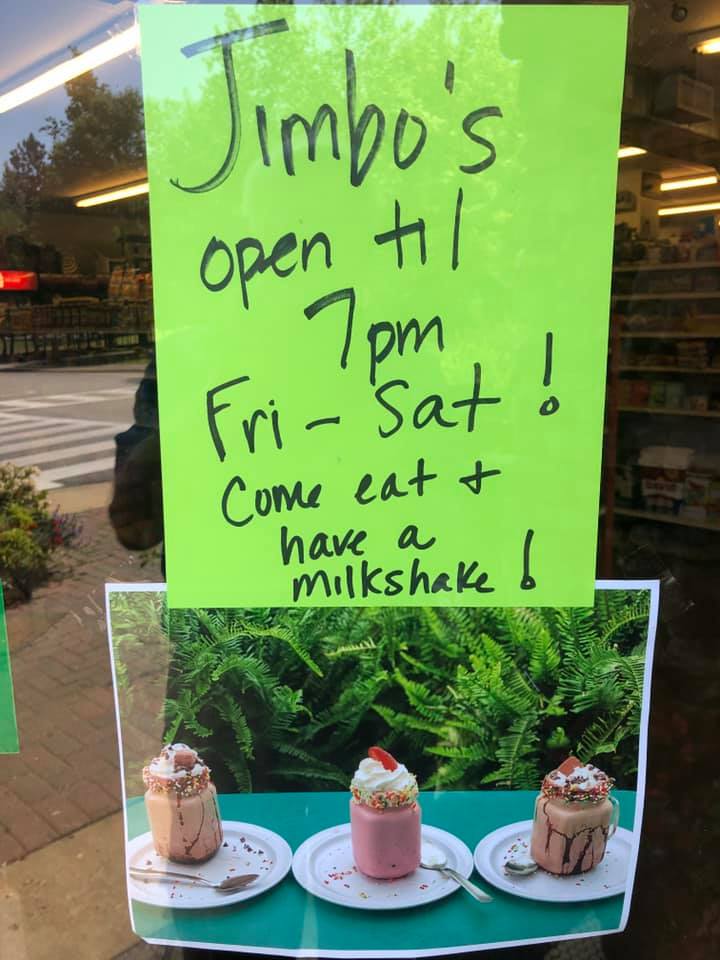 Jimbo's
open til
7pm
Fri - Sat !
Come eat +
have a
milkshake !